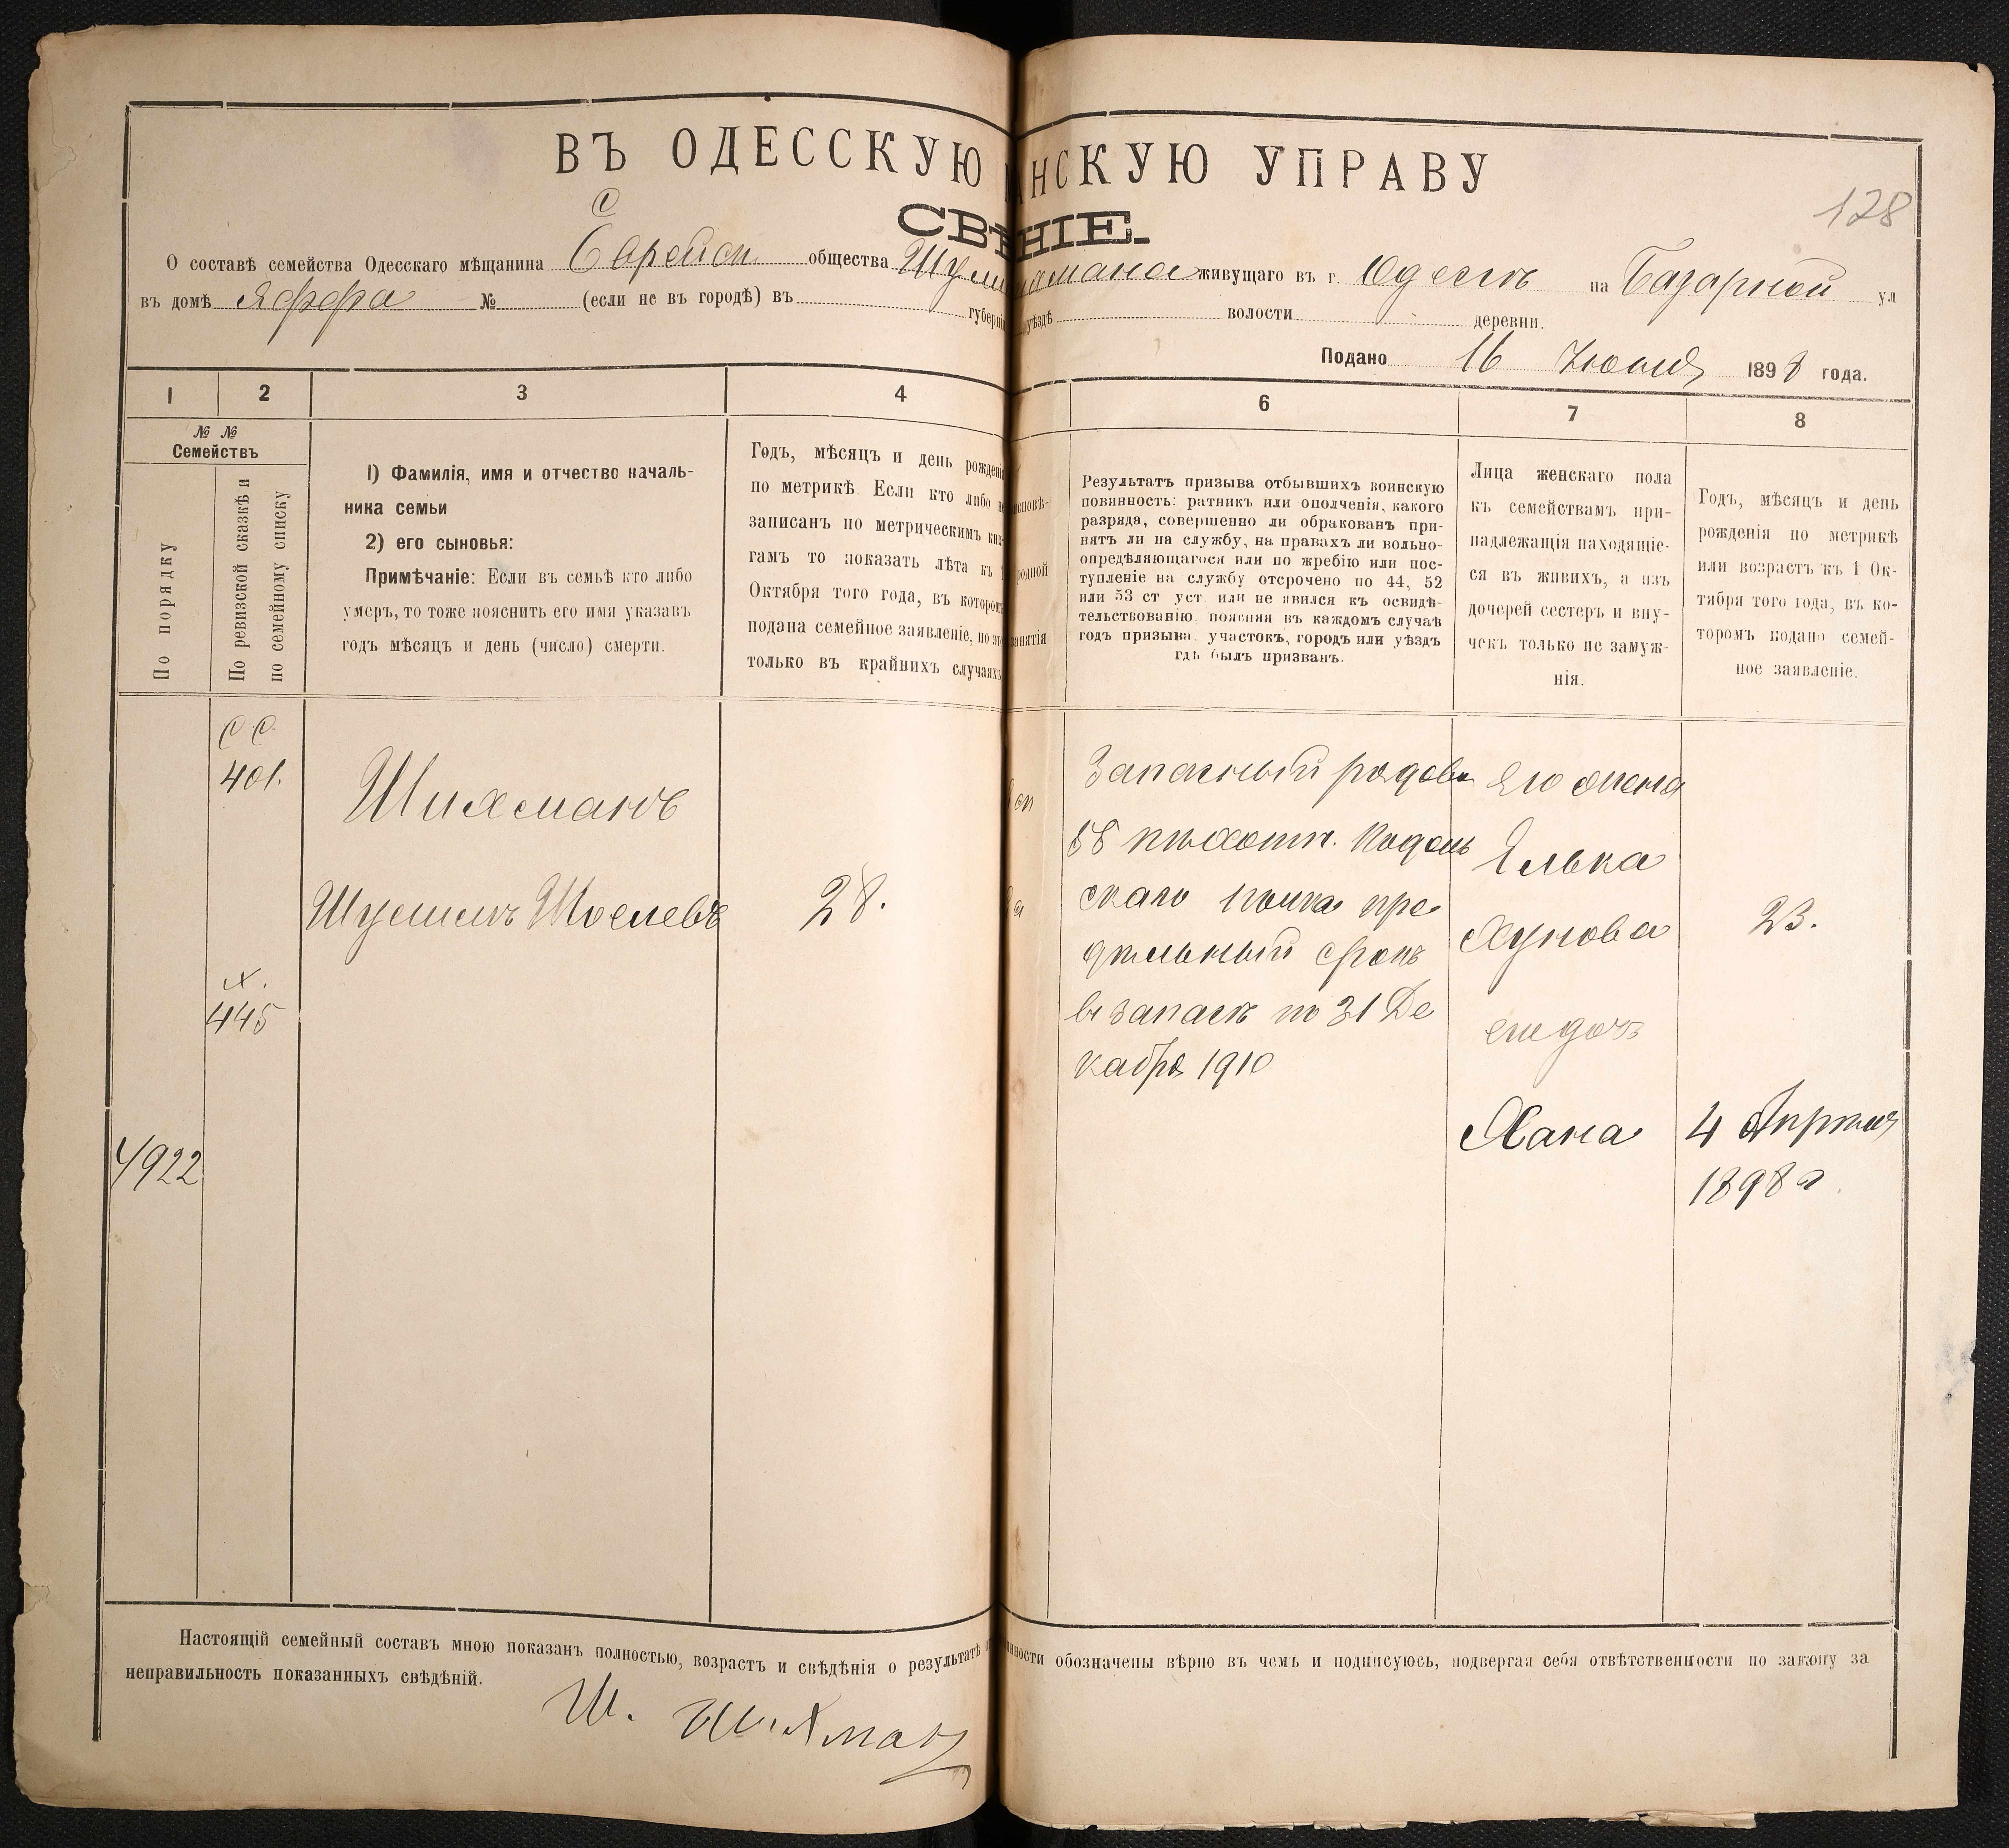 ВЪ ОДЕССКУЮ НСКУЮ УПРАВУ
128
С
СВѢНІЕ.
О составѣ семейства Одесскаго мѣщанина Еврейск. общества живущаго въ г. Одессѣ на Базарной ул
въ домѣ Яффа № (если не въ городѣ) въ губерніи уѣздѣ волости деревни.
Подано 16 Іюня 1898 года.
1 2 3 4 6 7 8
№ №
Семействъ
По порядку
По ревизской сказкѣ и
по семейному списку
1) Фамилія, имя и отчество началь-
ника семьи
2) его сыновья:
Примѣчаніе: Если въ семьѣ кто либо
умеръ, то тоже пояснить его имя указавъ
годъ мѣсяцъ и день (число) смерти.
Годъ, мѣсяцъ и день рожденія
по метрикѣ Если кто либо не
записанъ по метрическимъ кни-
гамъ то показать лѣта къ 1
Октября того года, въ которомъ
подана семейное заявленіе, но это
только въ крайнихъ случаяхъ
исповѣ-
родной
занятія
Результатъ призыва отбывшихъ воинскую
повинность: ратникъ или ополченія, какого
разряда, совершенно ли обракованъ при-
нятъ ли на службу, на правахъ ли вольно-
опредѣляющагося или по жребію или пос-
тупленіе на службу отсрочено по 44, 52
или 53 ст уст. или не явился къ освидѣ-
тельствованію, поясняя въ каждомъ случаѣ
годъ призыва, участокъ, городъ или уѣздъ
гдѣ былъ призванъ.
Лица женскаго пола
къ семействамъ при-
надлежащія находящіе-
ся въ живихъ, а изъ
дочерей сестеръ и вну-
чекъ только не замуж-
нія.
Годъ, мѣсяцъ и день
рожденія по метрикѣ
или возрастъ къ 1 Ок-
тября того года, въ ко-
торомъ подано семей-
ное заявленіе.
С С.
401.
Х.
445
4922
Шихманъ
Шулимъ Іоселевъ
28.
Запасный рядовой
пѣхотн. Подоль
скаго полка пре
дѣльный срокъ
въ запасѣ по 31 Де
кабря 1910
Его жена
Элька
Хунова
его дочь
Хана
23.
4 Апрѣля
1898 г
Настоящій семейный составъ мною показанъ полностью, возрастъ и свѣдѣнія о результатѣ обозначены вѣрно въ чемъ и подписуюсь, подвергая себя отвѣтственности по закону за
неправильность показанныхъ свѣдѣній.
Ш. Шихман